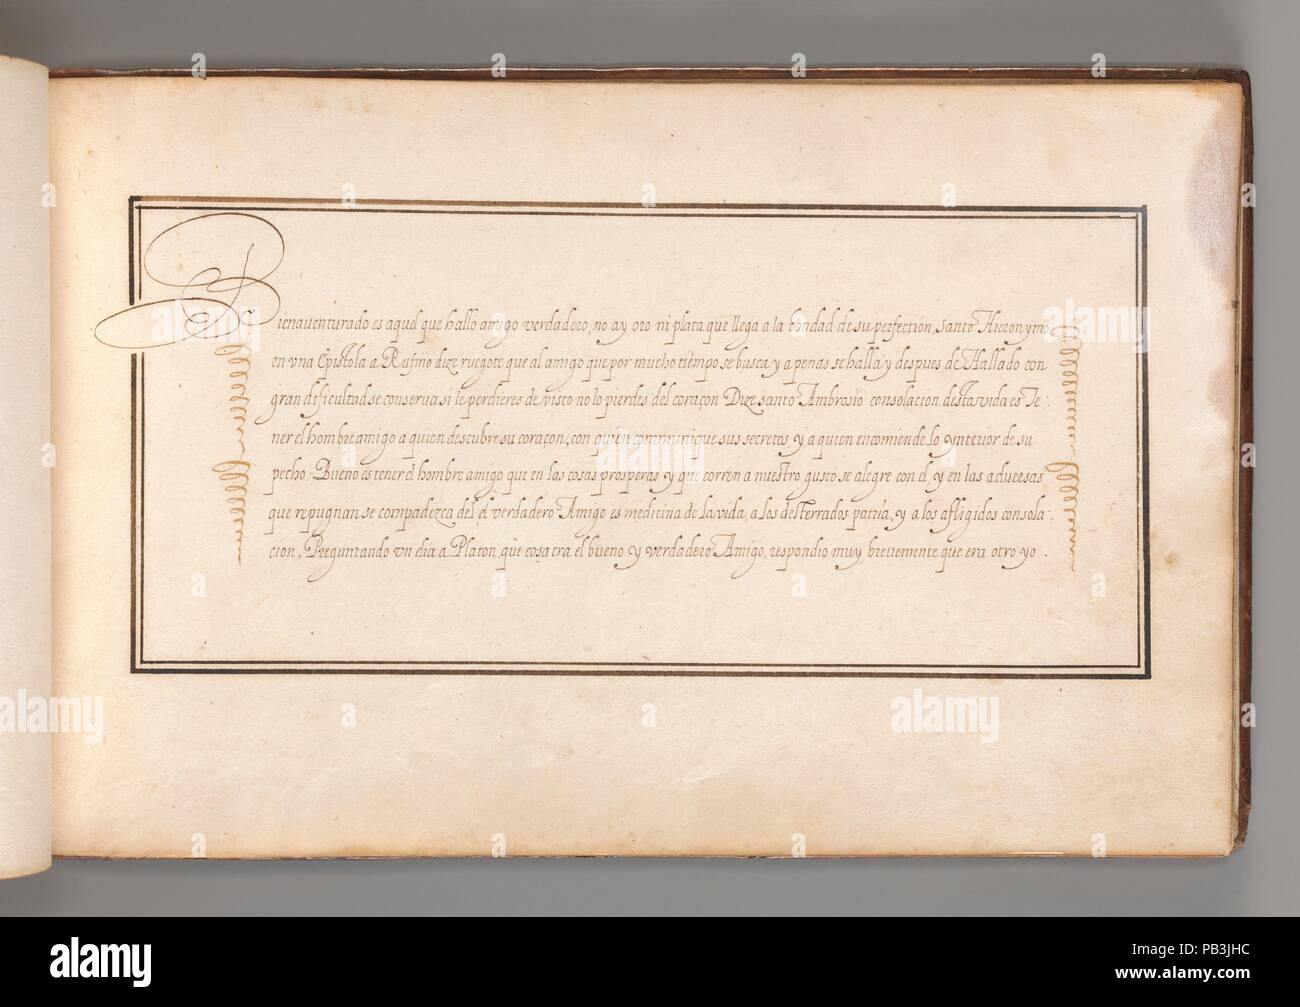 Bienauenturado es aquel que hallo amigo verdadero, no ay oro ni plata que llega a la bondad de su perfection, santo Hieronymo
en vna Epistola a Rufino dize ruegote que al amigo que por mucho tiempo se busca y apenas se halla y despues de Hallado con
gran dificultad se conserua si le perdieres de visto no lo pierdes del coraçon Dize santo Ambrosio consolacion desta vida es Te :
ner el hombre amigo a quien descubre su coraçon, con quien communique sus secretos, y a quien encomiende lo ynterior de su
pecho Bueno es tener el hombre amigo que en las cosas prosperas y que corren a nuestro gusto se alegre con el y en las aduersas
que repugnan se compadezca del, el verdadero Amigo es medicina de la vida, a los desterrados patria, y a los afligidos consola :
cion, Preguntando vn dia a Platon, que cosa era el bueno y verdadero Amigo, respondio muy breuemente que era otro yo .
alamy
alamy stock photo
PB3JHC
www.alamy.com